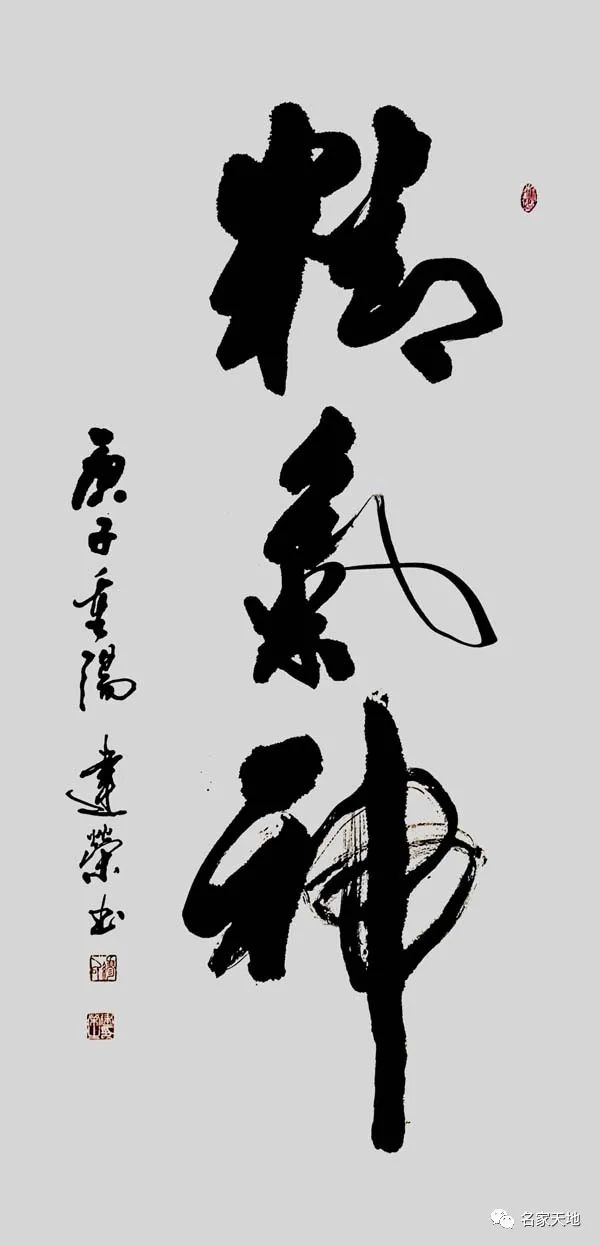 精氣神
庚子重陽 建榮书
名家天地